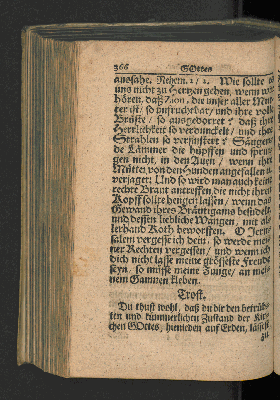 366 GOttes
aussahe. Nehem. 2/2. Wie sollte es
uns nicht zu Hertzen gehen, wenn wir
hören, daß Zion, die unser aller Mut-
ter ist/ so unfruchtbar/ und ihre volle
Brüste/ so ausgedorret? daß ihre
Herrlichkeit so verdunckelt/ und ihre
Strahlen so verfinstert? Säugen-
de Lämmer die hüpffen und sprin-
gen nicht, in den Auen/ wenn ihre
Mütter von den Hunden angefallen u.
verjaget: Und so wird man auch keine
rechte Braut antreffen die nicht ihren
Kopff sollte hengen lassen/ wenn das
Gewand ihres Bräutigams besudelt
und dessen liebliche Wangen, mit al-
lerhand Koth beworffen. O Jeru-
salem vergesse ich dein, so werde mei-
ner Rechten vergessen/ und wenn ich
dich nicht lasse meine grösseste Freude
seyn, so müsse meine Zunge/ an mei-
nem Gaumen kleben.
Trost.
Du thust wohl, daß du dir den betrüb-
ten und kümmerlichen Zustand der Kir-
chen GOttes, hienieden auf Erden, lässest
zu